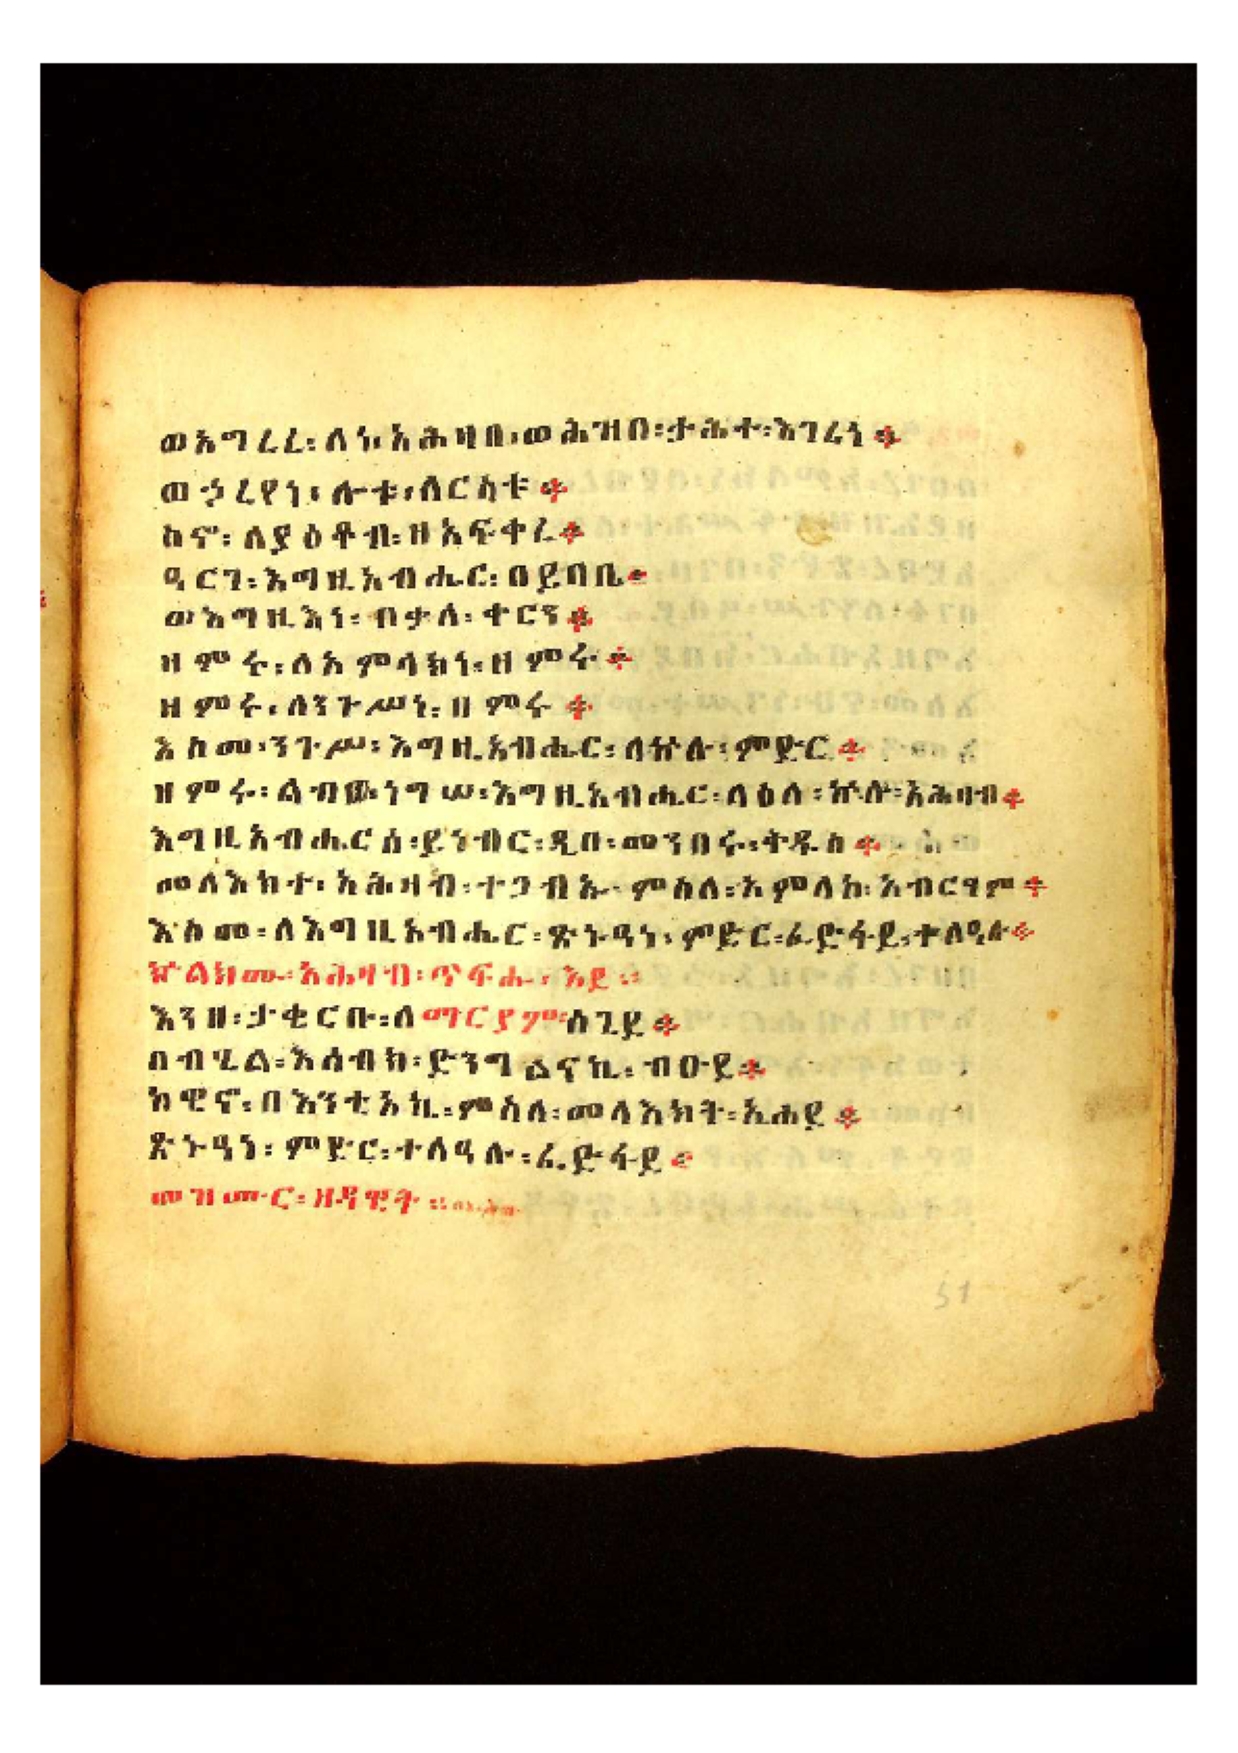 ወአግረረ፡ለነ፡አሕዛበ፡ወሕዝበ፡ታሕተ፡እገሪነ፨
ወኃረየነ፡ሎቱ፡ለርስቱ፨
ስኖ፡ለያዕቆብ፡ዘአፍቀረ፨
ዓርገ፡እግዚአብሔር፡በይባቤ፨
ወእግዚእነ፡በቃለ፡ቀርን፨
ዘምሩ፡ለአምላክነ፡ዘምሩ፨
ዘምሩ፡ለንጉሥነ፡ዘምሩ፨
እስመ፡ንጉሥ፡እግዚአብሔር፡ለኵሉ፡ምድር፨
ዘምሩ፡ልብዉ፡ነግሠ፡እግዚአብሔር፡ላዕለ፡ኵሉ፡አሕዛብ፨
እግዚአብሔርሰ፡ይነብር፡ዲበ፡መንበሩ፡ቅዱስ፨
መላእክተ፡አሕዛብ፡ተጋብኡ፡ምስለ፡አምላከ፡አብርሃም፨
እስመ፡ለእግዚአብሔር፡ጽኑዓነ፡ምድር፡ፈድፋደ፡ተለዓሉ፨
ኵልክሙ፡አሕዛብ፡ጥፍሑ፡እደ፡፡
እንዘ፡ታቂርቡ፡ለማርያም፡ስጊደ፨
በብሂል፡እሰብክ፡ድንግልናኪ፡ብዑደ፨
ከዊኖ፡በእንቲአኪ፡ምስለ፡መላእክት፡አሐደ፨
ጽኑዓነ፡ምድር፡ተለዓሉ፡ፈድፋደ፨
መዝሙር፡ዘዳዊት፡፡
51